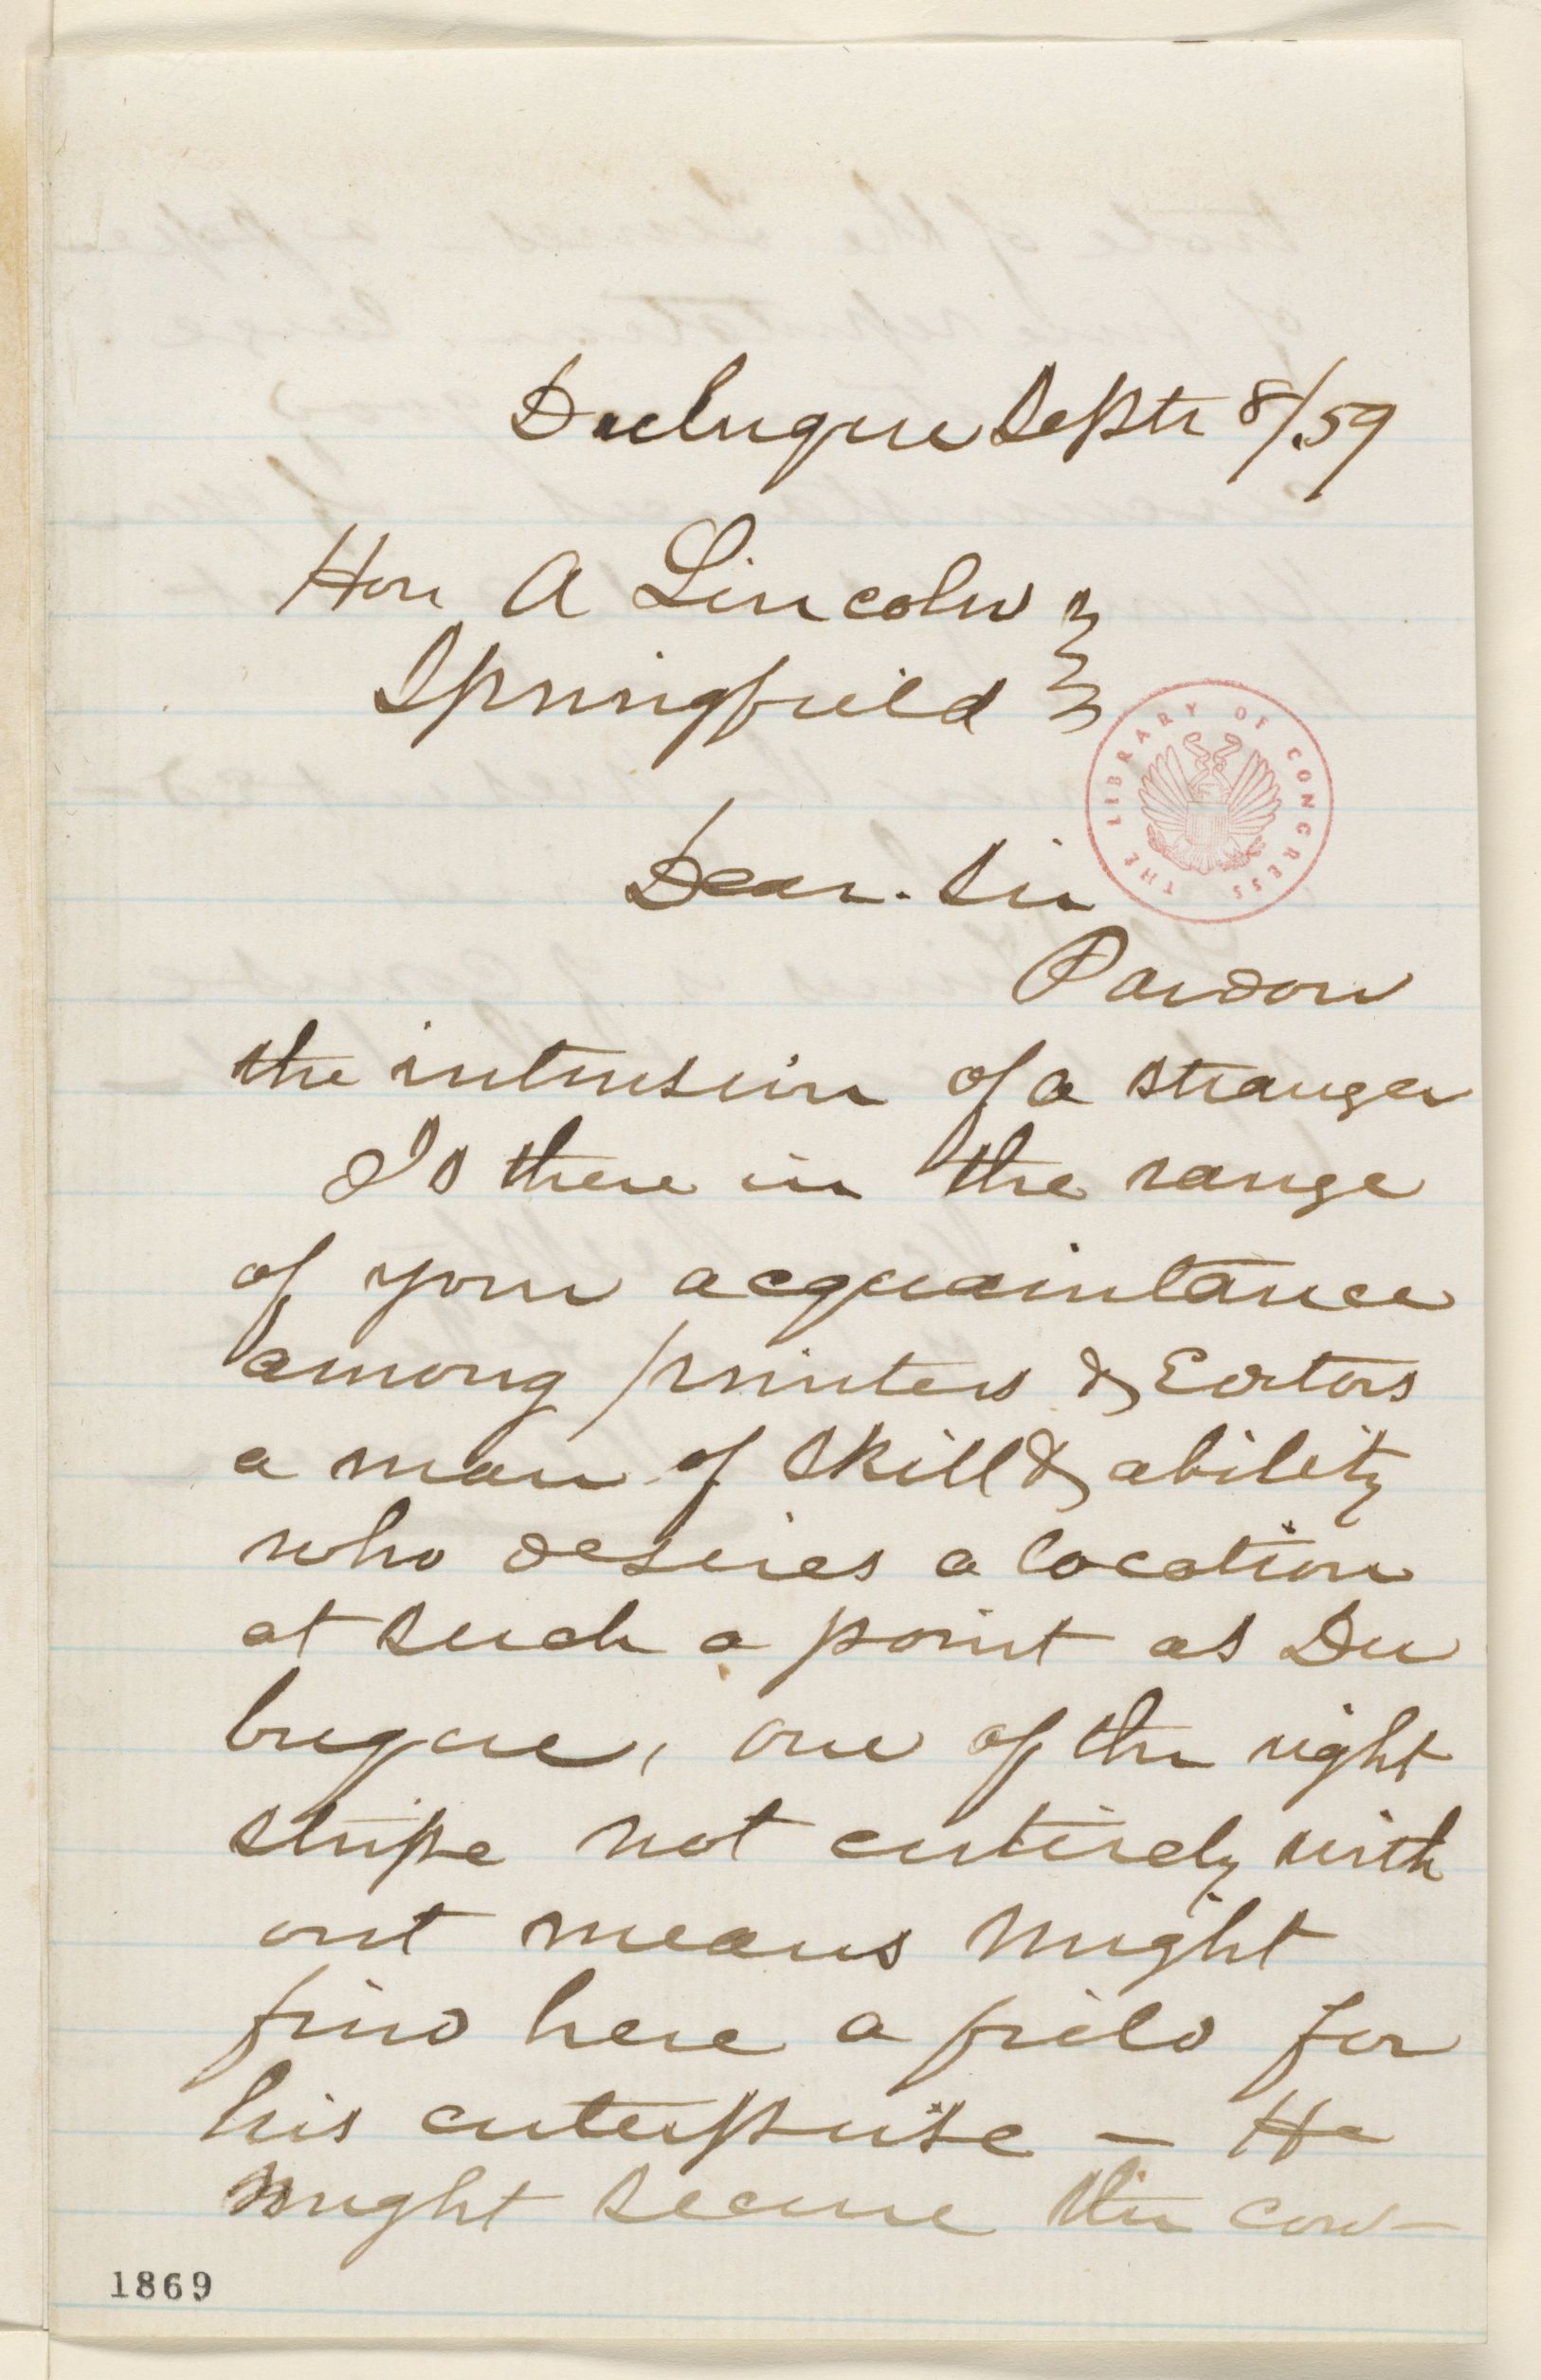 Dubuque Septr 8/59
Hon A Lincoln
Springfield
THE LIBRARY OF CONGRESS
Dear. Sir
Pardon
the intrusion of a stranger
Is there in the range
of your acquaintance
among printers & Editors
a man of skill & ability
who desires a location
at such a point as Du
buque, one of the right
stripe not entirely with
out means might
find here a field for
his enterprise — He
might secure the con-
1869